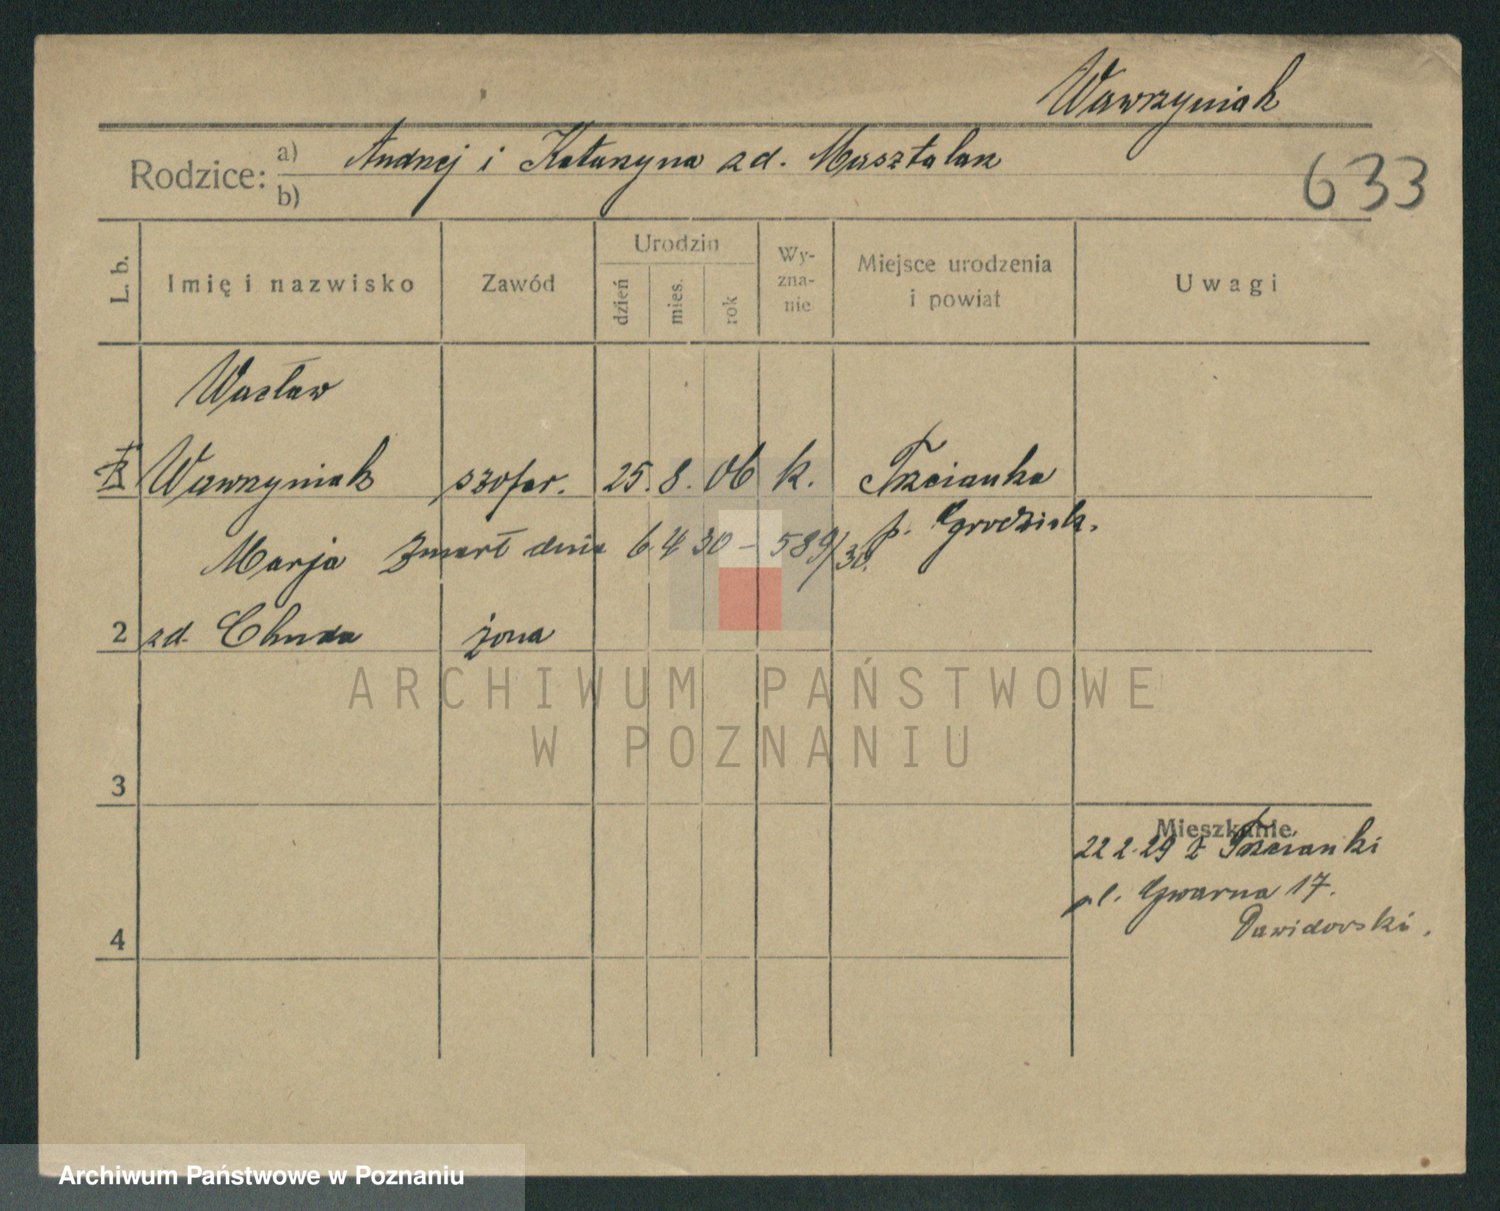 Wawrzyniak
Rodzice: a) Andrzej i Katarzyna zd. Masztalarz
b)
633
L. b.
Imię i nazwisko
Zawód
Urodzin
dzień
mies.
rok
Wy-
zna-
nie
Miejsce urodzenia
i powiat
Uwagi
Wacław
Wawrzyniak szofer. 25. 8. 06 k. Trzcianka
p. Grodzisk.
Marja Zmarł dnia 6 4 30 - 589/30.
2 zd. Chuda żona
3
4
Mieszkanie
22 2. 29 z Trzcianki
pl. Gwarna 17.
Dawidowski.
ARCHIWUM PAŃSTWOWE
W POZNANIU
Archiwum Państwowe w Poznaniu